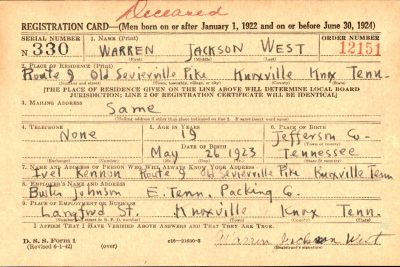 Deceased
REGISTRATION CARD—(Men born on or after January 1, 1922 and on or before June 30, 1924)
SERIAL NUMBER 1. NAME (Print) ORDER NUMBER
N 330 WARREN JACKSON WEST 12151
(First) (Middle) (Last)
2. PLACE OF RESIDENCE (Print)
Route 9 Old Sevierville Pike Knoxville Knox Tenn.
(Number and street) (Town, township, village, or city) (County) (State)
[THE PLACE OF RESIDENCE GIVEN ON THE LINE ABOVE WILL DETERMINE LOCAL BOARD
JURISDICTION; LINE 2 OF REGISTRATION CERTIFICATE WILL BE IDENTICAL]
3. MAILING ADDRESS
Same
(Mailing address if other than place indicated on line 2. If same insert word same)
4. TELEPHONE 5. AGE IN YEARS 6. PLACE OF BIRTH
None 19 Jefferson Co-
DATE OF BIRTH (Town or county)
May 26 1923 Tennessee
(Exchange) (Number) (Mo.) (Day) (Yr.) (State or country)
7. NAME AND ADDRESS OF PERSON WHO WILL ALWAYS KNOW YOUR ADDRESS
Ivel Kennon Route 9 Old Sevierville Pike Knoxville Tenn
8. EMPLOYER'S NAME AND ADDRESS
Butler Johnson E. Tenn. Packing Co.
9. PLACE OF EMPLOYMENT OR BUSINESS
Langford St. Knoxville Knox Tenn.
(Number and street or R. F. D. number) (Town) (County) (State)
I AFFIRM THAT I HAVE VERIFIED ABOVE ANSWERS AND THAT THEY ARE TRUE.
D. S. S. Form 1
(Revised 6-1-42) (over) Warren Jackson West
(Registrant's signature)